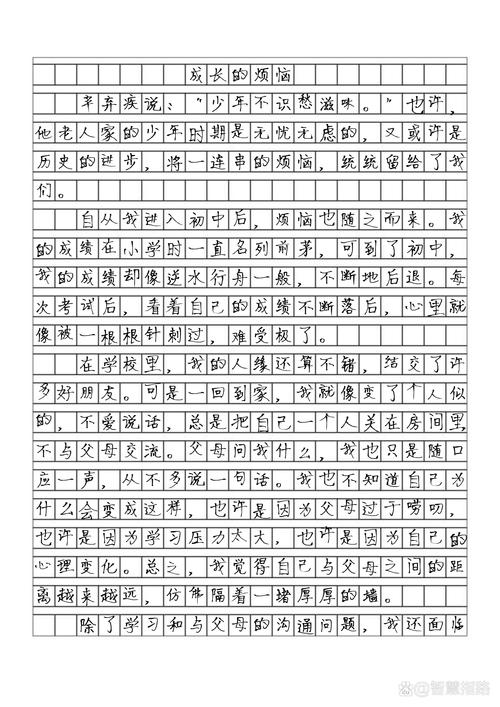 成长的烦恼
辛弃疾说：“少年不识愁滋味。”也许，
他老人家的少年时期是无忧无虑的，又或许是
历史的进步，将一连串的烦恼，统统留给了我
们。
自从我进入初中后，烦恼也随之而来。我
的成绩在小学时一直名列前茅，可到了初中，
我的成绩却像逆水行舟一般，不断地后退。每
次考试后，看着自己的成绩不断落后，心里就
像被一根根针刺过，难受极了。
在学校里，我的人缘还算不错，结交了许
多好朋友。可是一回到家，我就像变了个人似
的，不爱说话，总是把自己一个人关在房间里，
不与父母交流。父母问我什么，我也只是随口
应一声，从不多说一句话。我也不知道自己为
什么会变成这样，也许是因为父母过于唠叨，
也许是因为学习压力太大，也许是因为自己的
心理变化。总之，我觉得自己与父母之间的距
离越来越远，仿佛隔着一堵厚厚的墙。
除了学习和与父母的沟通问题，我还面临
智慧指路